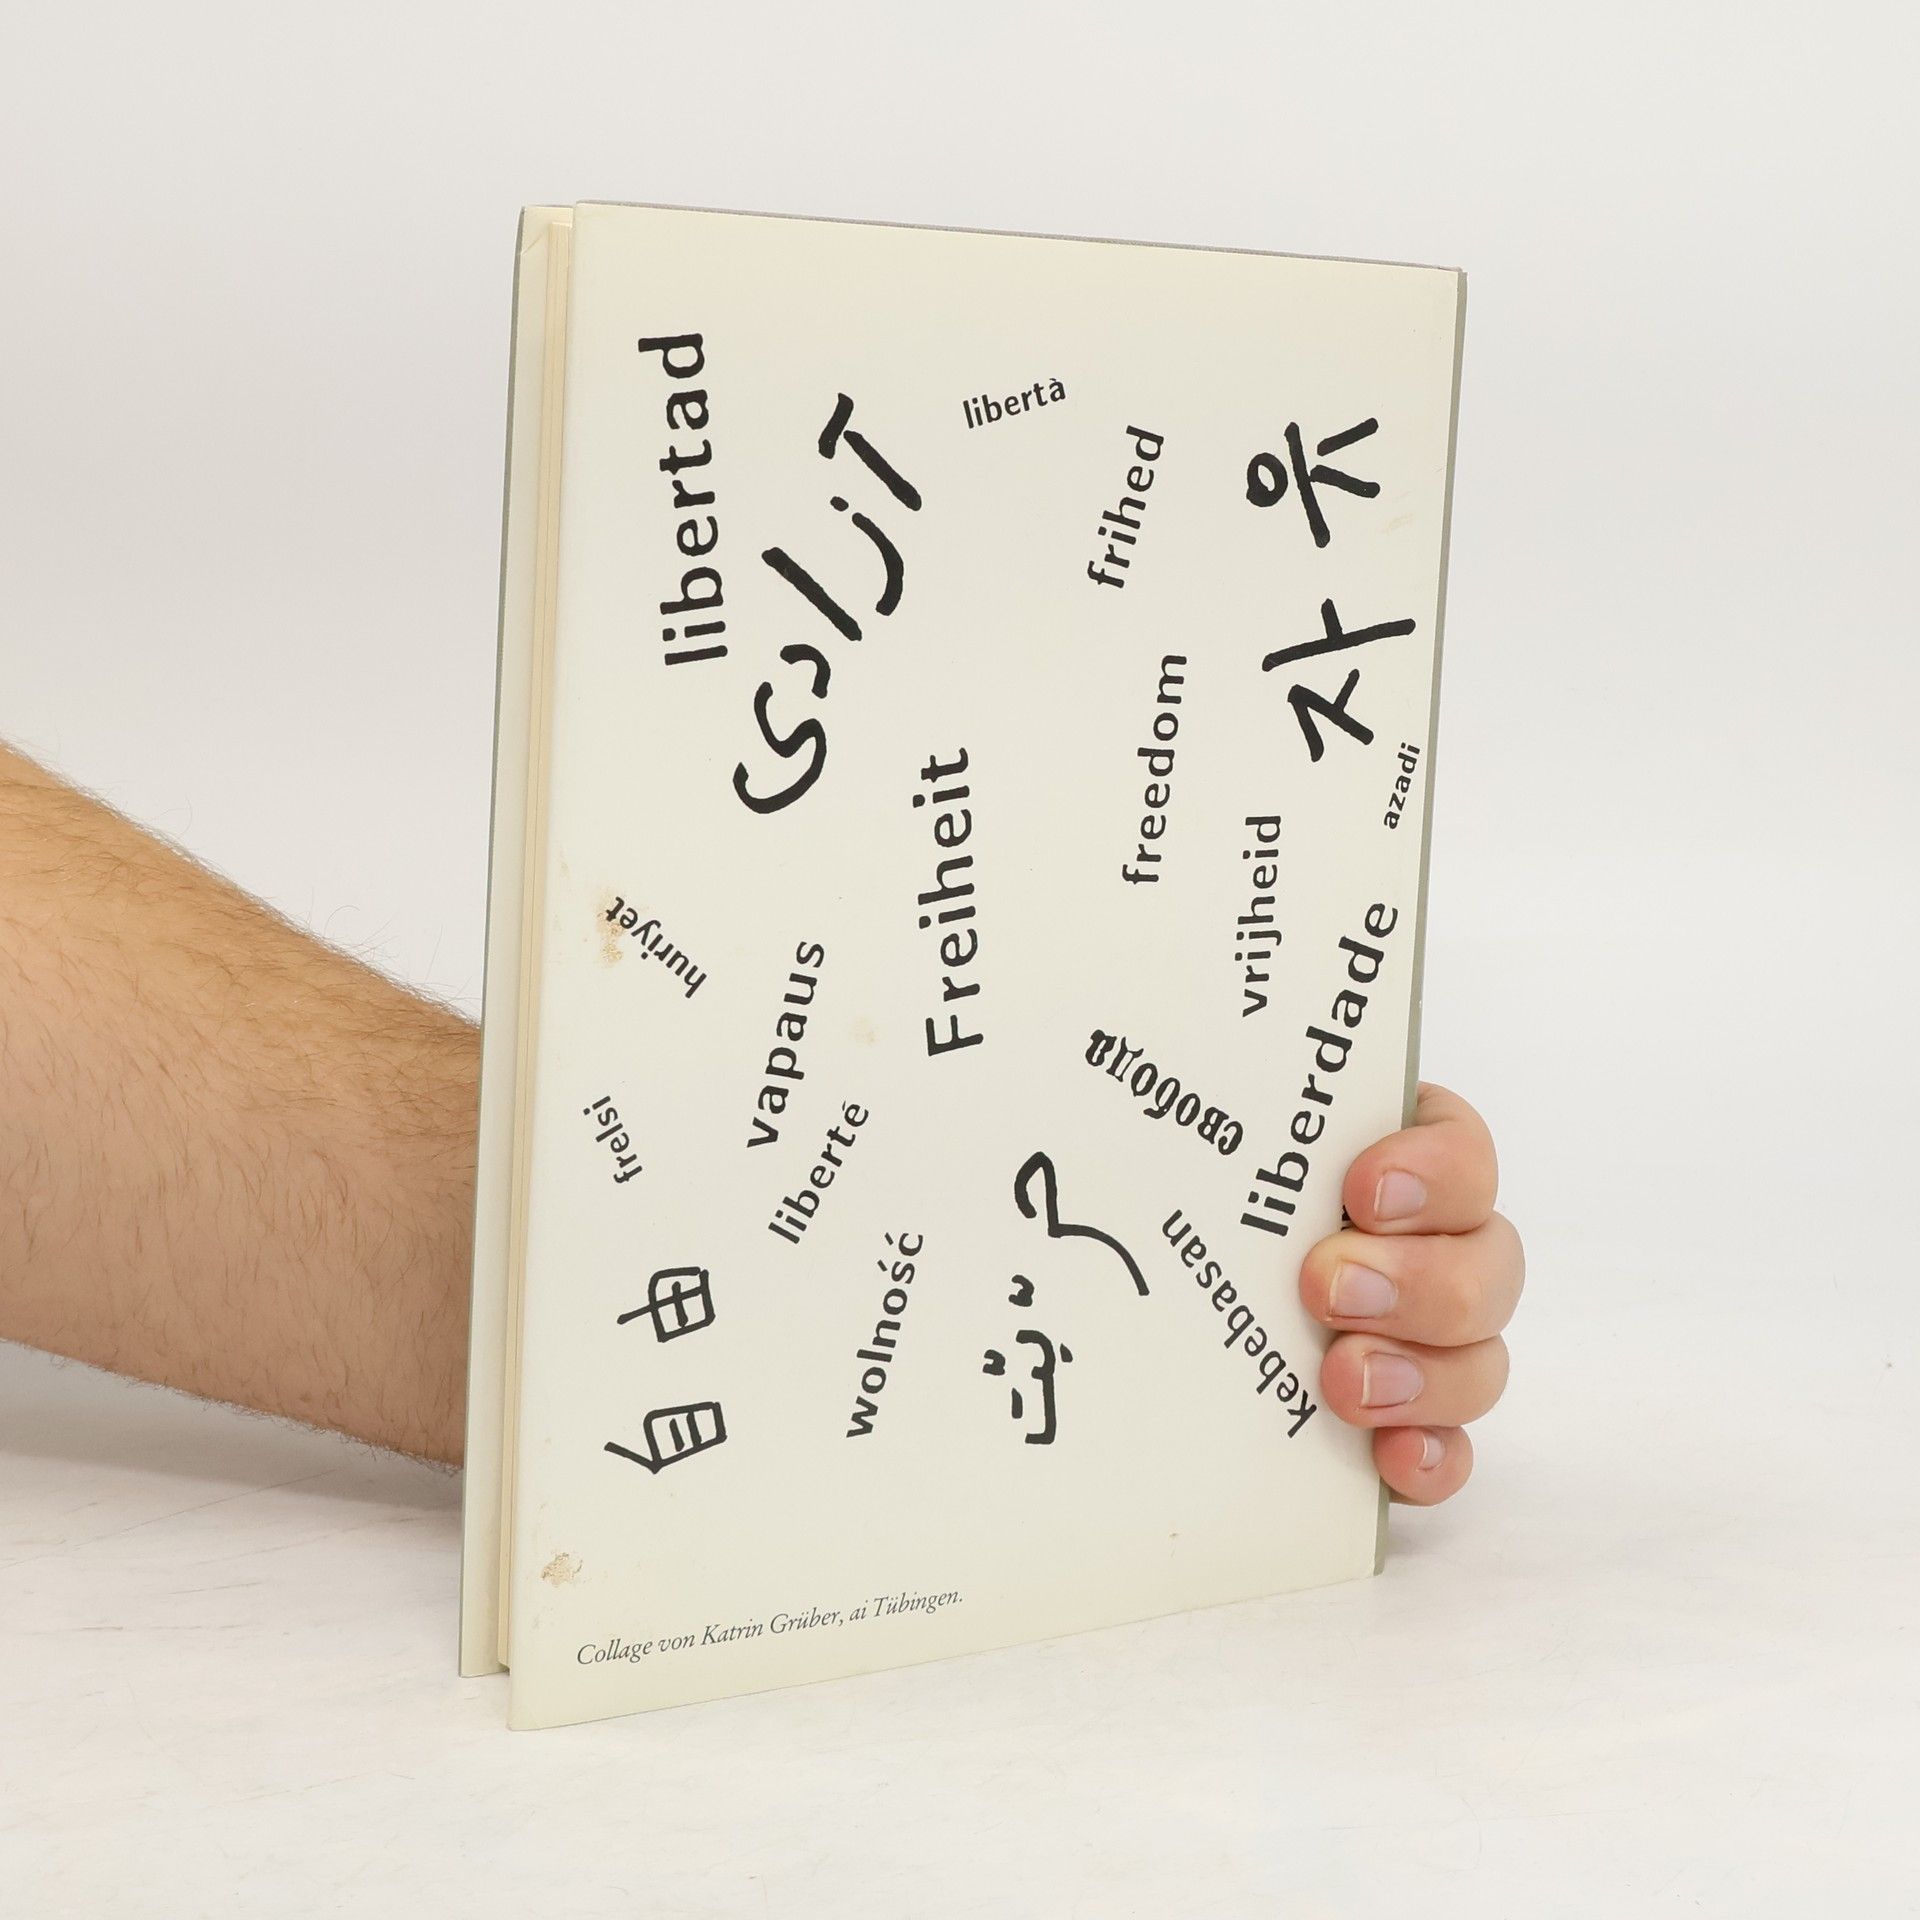 libertad
آزادی
libertà
frihed
자유
freedom
azadi
Freiheit
vrijheid
huriyet
vapaus
свобода
liberdade
frelsi
liberté
wolność
حرّيّت
kebebasan
自由
Collage von Katrin Grüber, ai Tübingen.